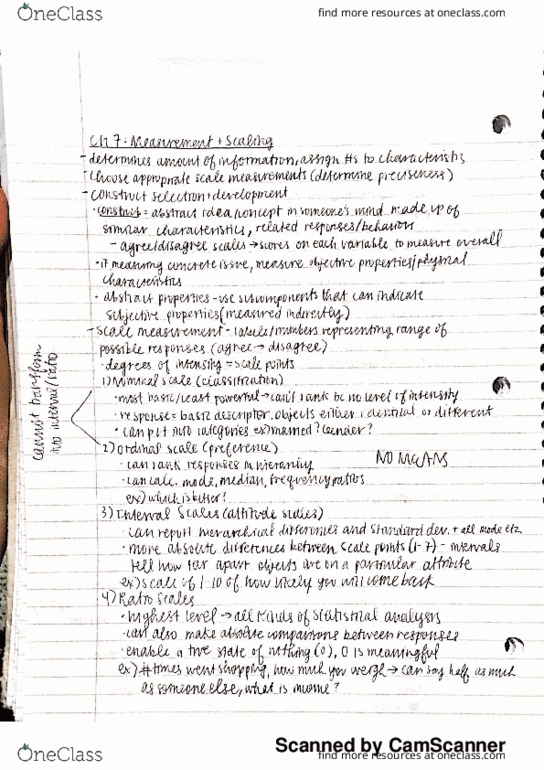 OneClass
find more resources at oneclass.com
Ch 7: Measurement + Scaling
- determines amount of information, assign #s to characteristics
- Choose appropriate scale measurements (determine preciseness)
- Construct selection + development
· construct = abstract idea/concept in someone's mind made up of
similar characteristics, related responses/behaviors
- agree/disagree scales → scores on each variable to measure overall
· if measuring concrete issue, measure objective properties/physical
characteristics
· abstract properties - use subcomponents that can indicate
subjective properties (measured indirectly)
- Scale measurement - labels/numbers representing range of
possible responses (agree → disagree)
· degrees of intensity = scale points
1) Nominal scale (classification)
· most basic/least powerful → can't rank bc no level of intensity
· response = basic descriptor. objects either identical or different
· can put into categories ex) married? Gender?
2) Ordinal scale (preference)
· can rank responses in hierarchy
NO MEANS
· can calc. mode, median, frequency ratios
ex) which is better?
cannot transform
into interval/ratio
3) Interval Scales (attitude scales)
· can report hierarchical differences and standard dev. + all mode etc.
· more absolute differences between scale points (1-7) - intervals
tell how far apart objects are on a particular attribute
ex) scale of 1-10 of how likely you will come back
4) Ratio Scales
· highest level → all kinds of statistical analysis
· can also make absolute comparisons between responses
· enable a true state of nothing (0), 0 is meaningful
ex) # times went shopping, how much you weigh → can say half as much
as someone else, what is income?
Scanned by CamScanner
OneClass
find more resources at oneclass.com